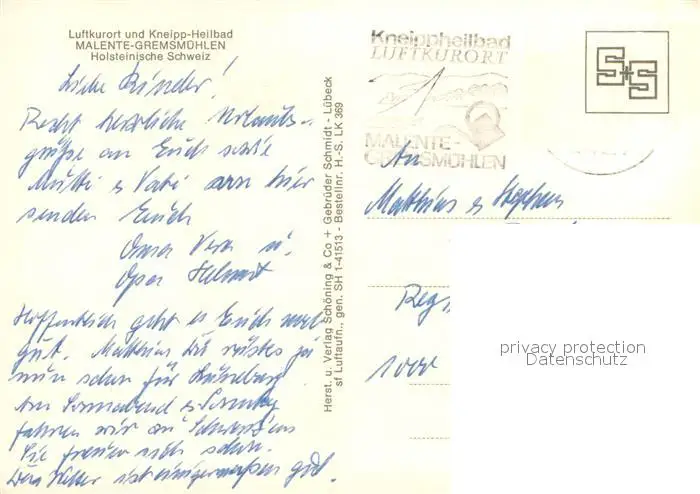 Luftkurort und Kneipp-Heilbad
MALENTE-GREMSMÜHLEN
Holsteinische Schweiz
Liebe Kinder!
Recht herzliche Urlaubs-
grüße an Euch sowie
Mutti & Vati von hier
senden Euch
Oma Vera u.
Opa Helmut
Hoffentlich geht es Euch
gut. Matthias Du rüstes ja
nun schon für
Am Sonnabend & Sonntag
fahren wir zu
Sie freuen sich schon.
Das Wetter ist einigermaßen gut.
Herst. u. Verlag Schöning & Co + Gebrüder Schmidt - Lübeck
sf Luftaufn., gen. SH 1-41513 - Bestellnr. H.-S. LK 369
Kneippheilbad
LUFTKURORT
MALENTE-
GREMSMÜHLEN
S+S
An
Matthias & Stephan
1000
privacy protection
Datenschutz